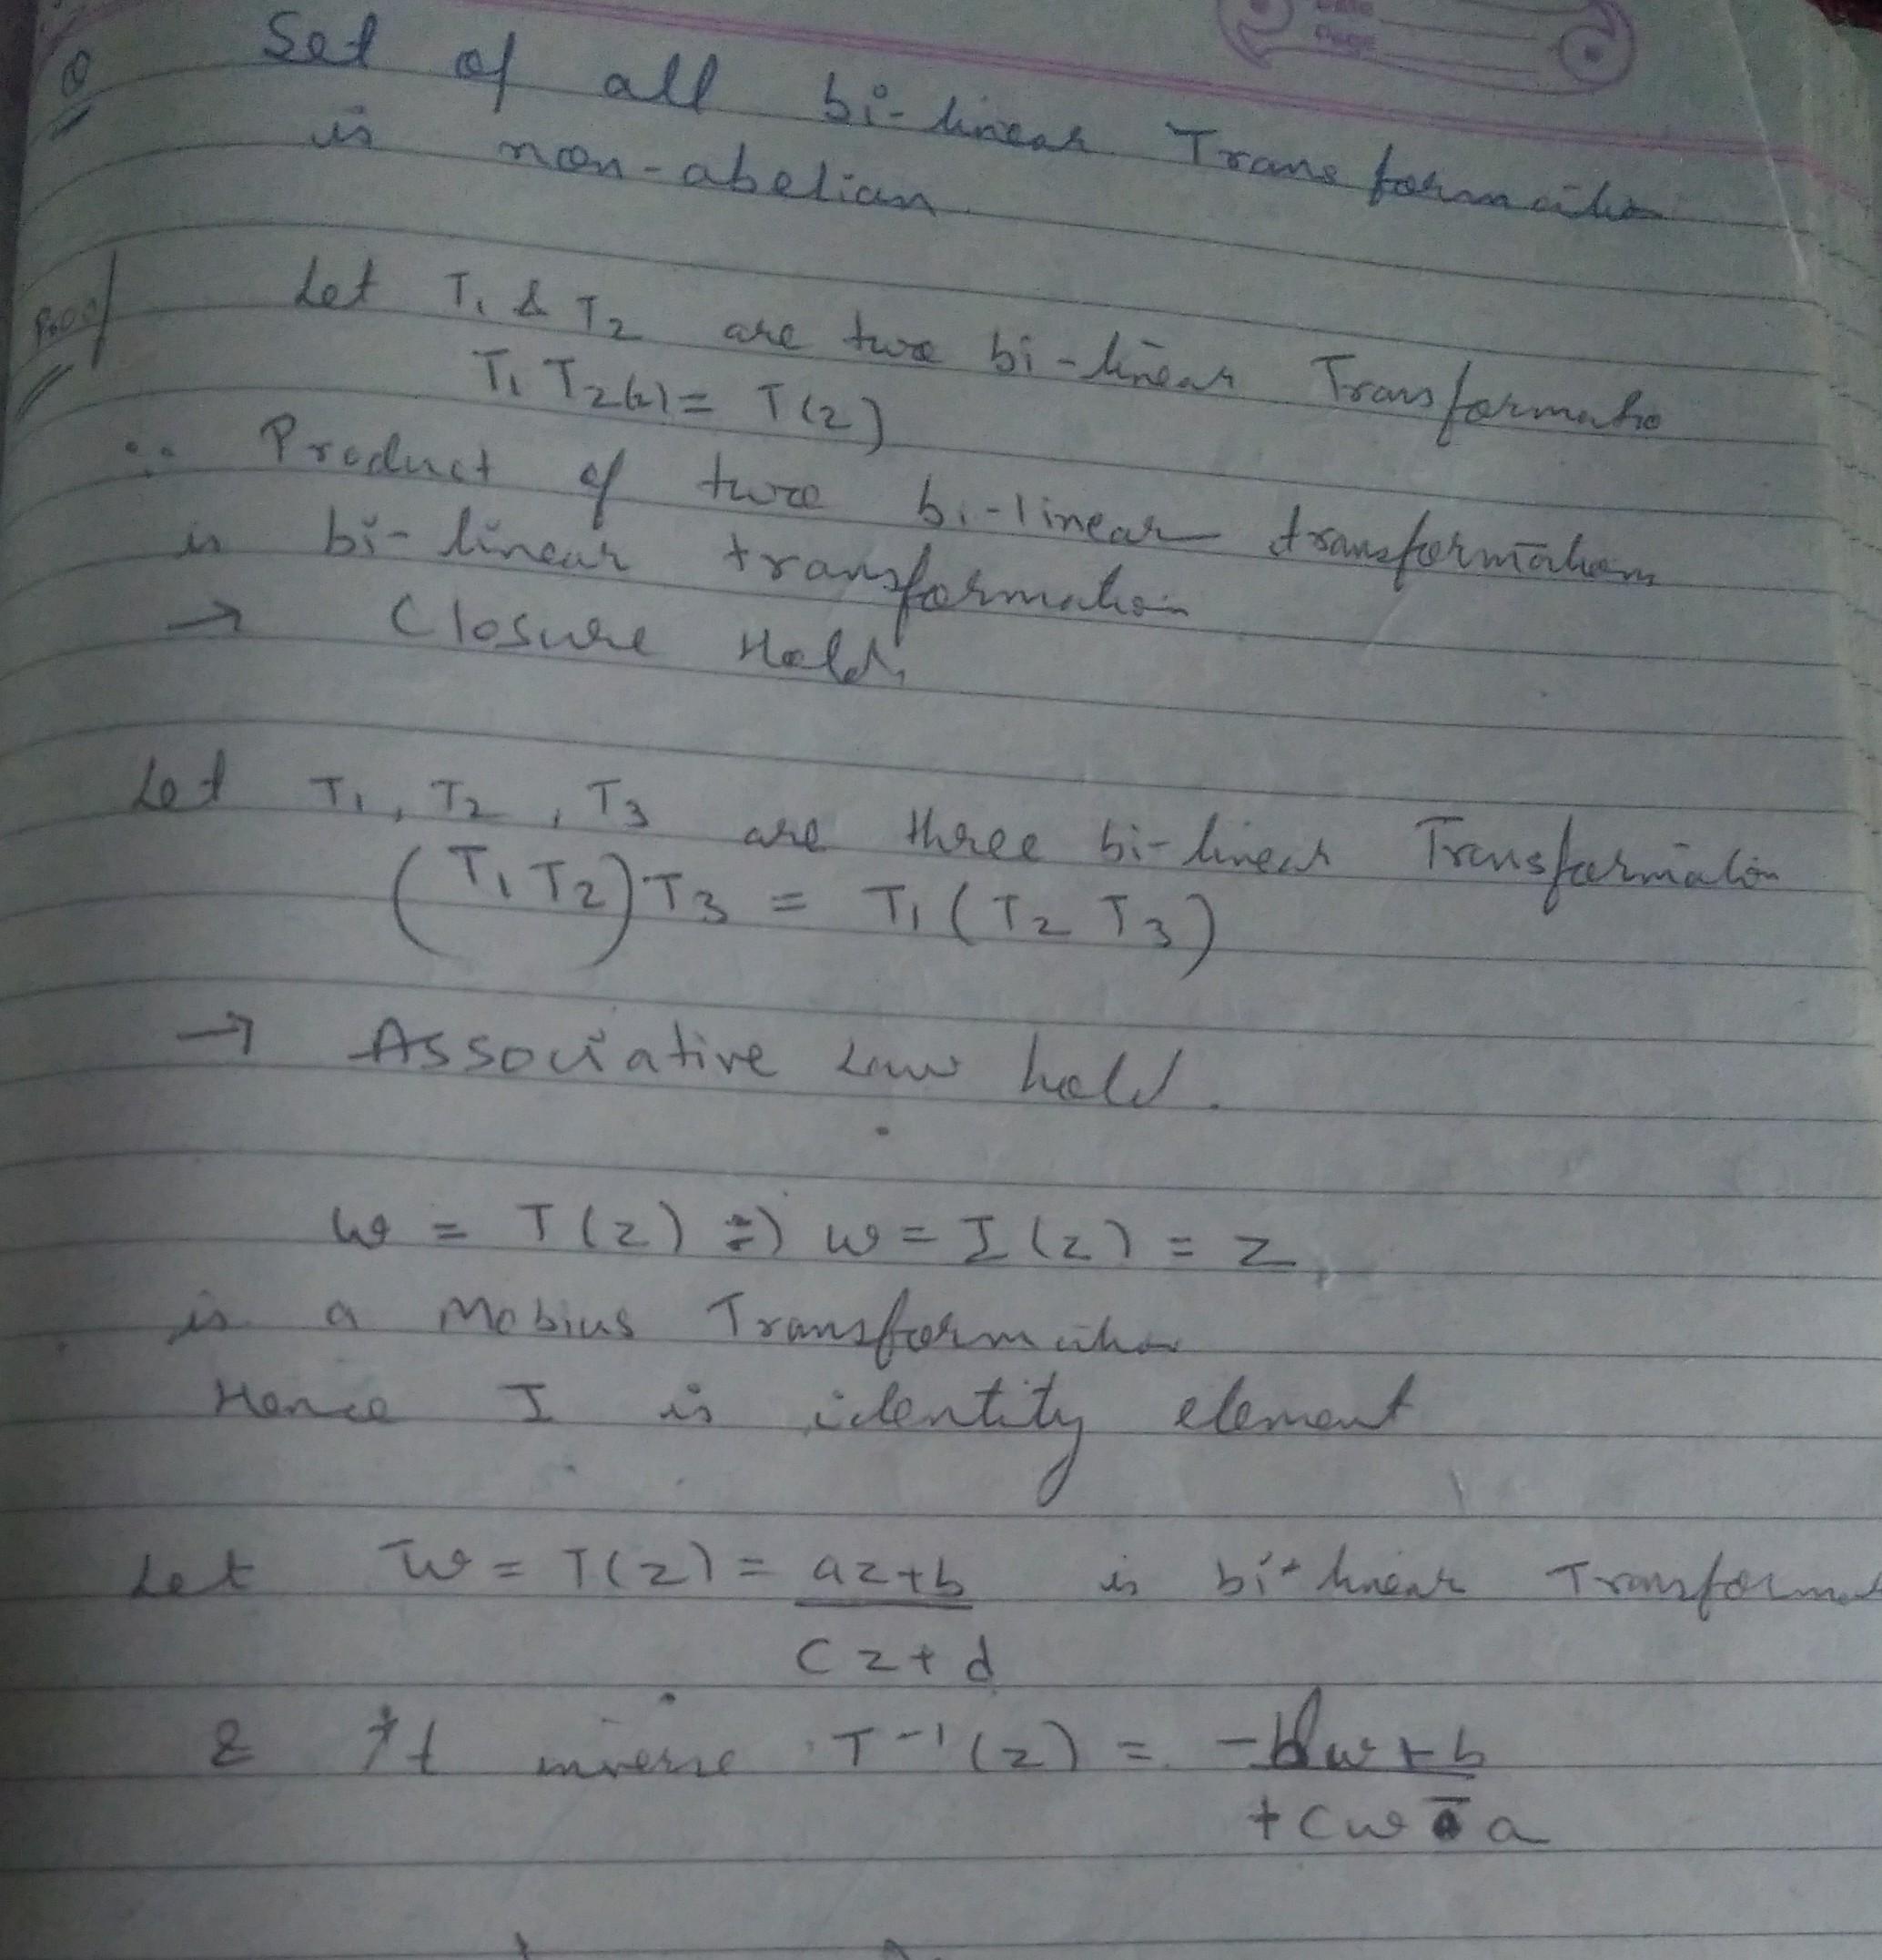 Date
Page
Q Set of all bi-linear Transformation
is non-abelian
Proof Let T1 & T2 are two bi-linear Transformatio
T1 T2(z) = T(z)
∴ Product of two bi-linear transformations
is bi-linear transformation
→ Closure Hold,
Let T1, T2, T3 are three bi-linear Transformation
(T1 T2) T3 = T1 (T2 T3)
→ Associative Law hold.
w = T(z) => w = I(z) = z,
is a Mobius Transformation
Hence I is identity element
Let w = T(z) = az+b is bi-linear Transformat
cz+d
& It inverse T-1(z) = -dw+b
+cw-a